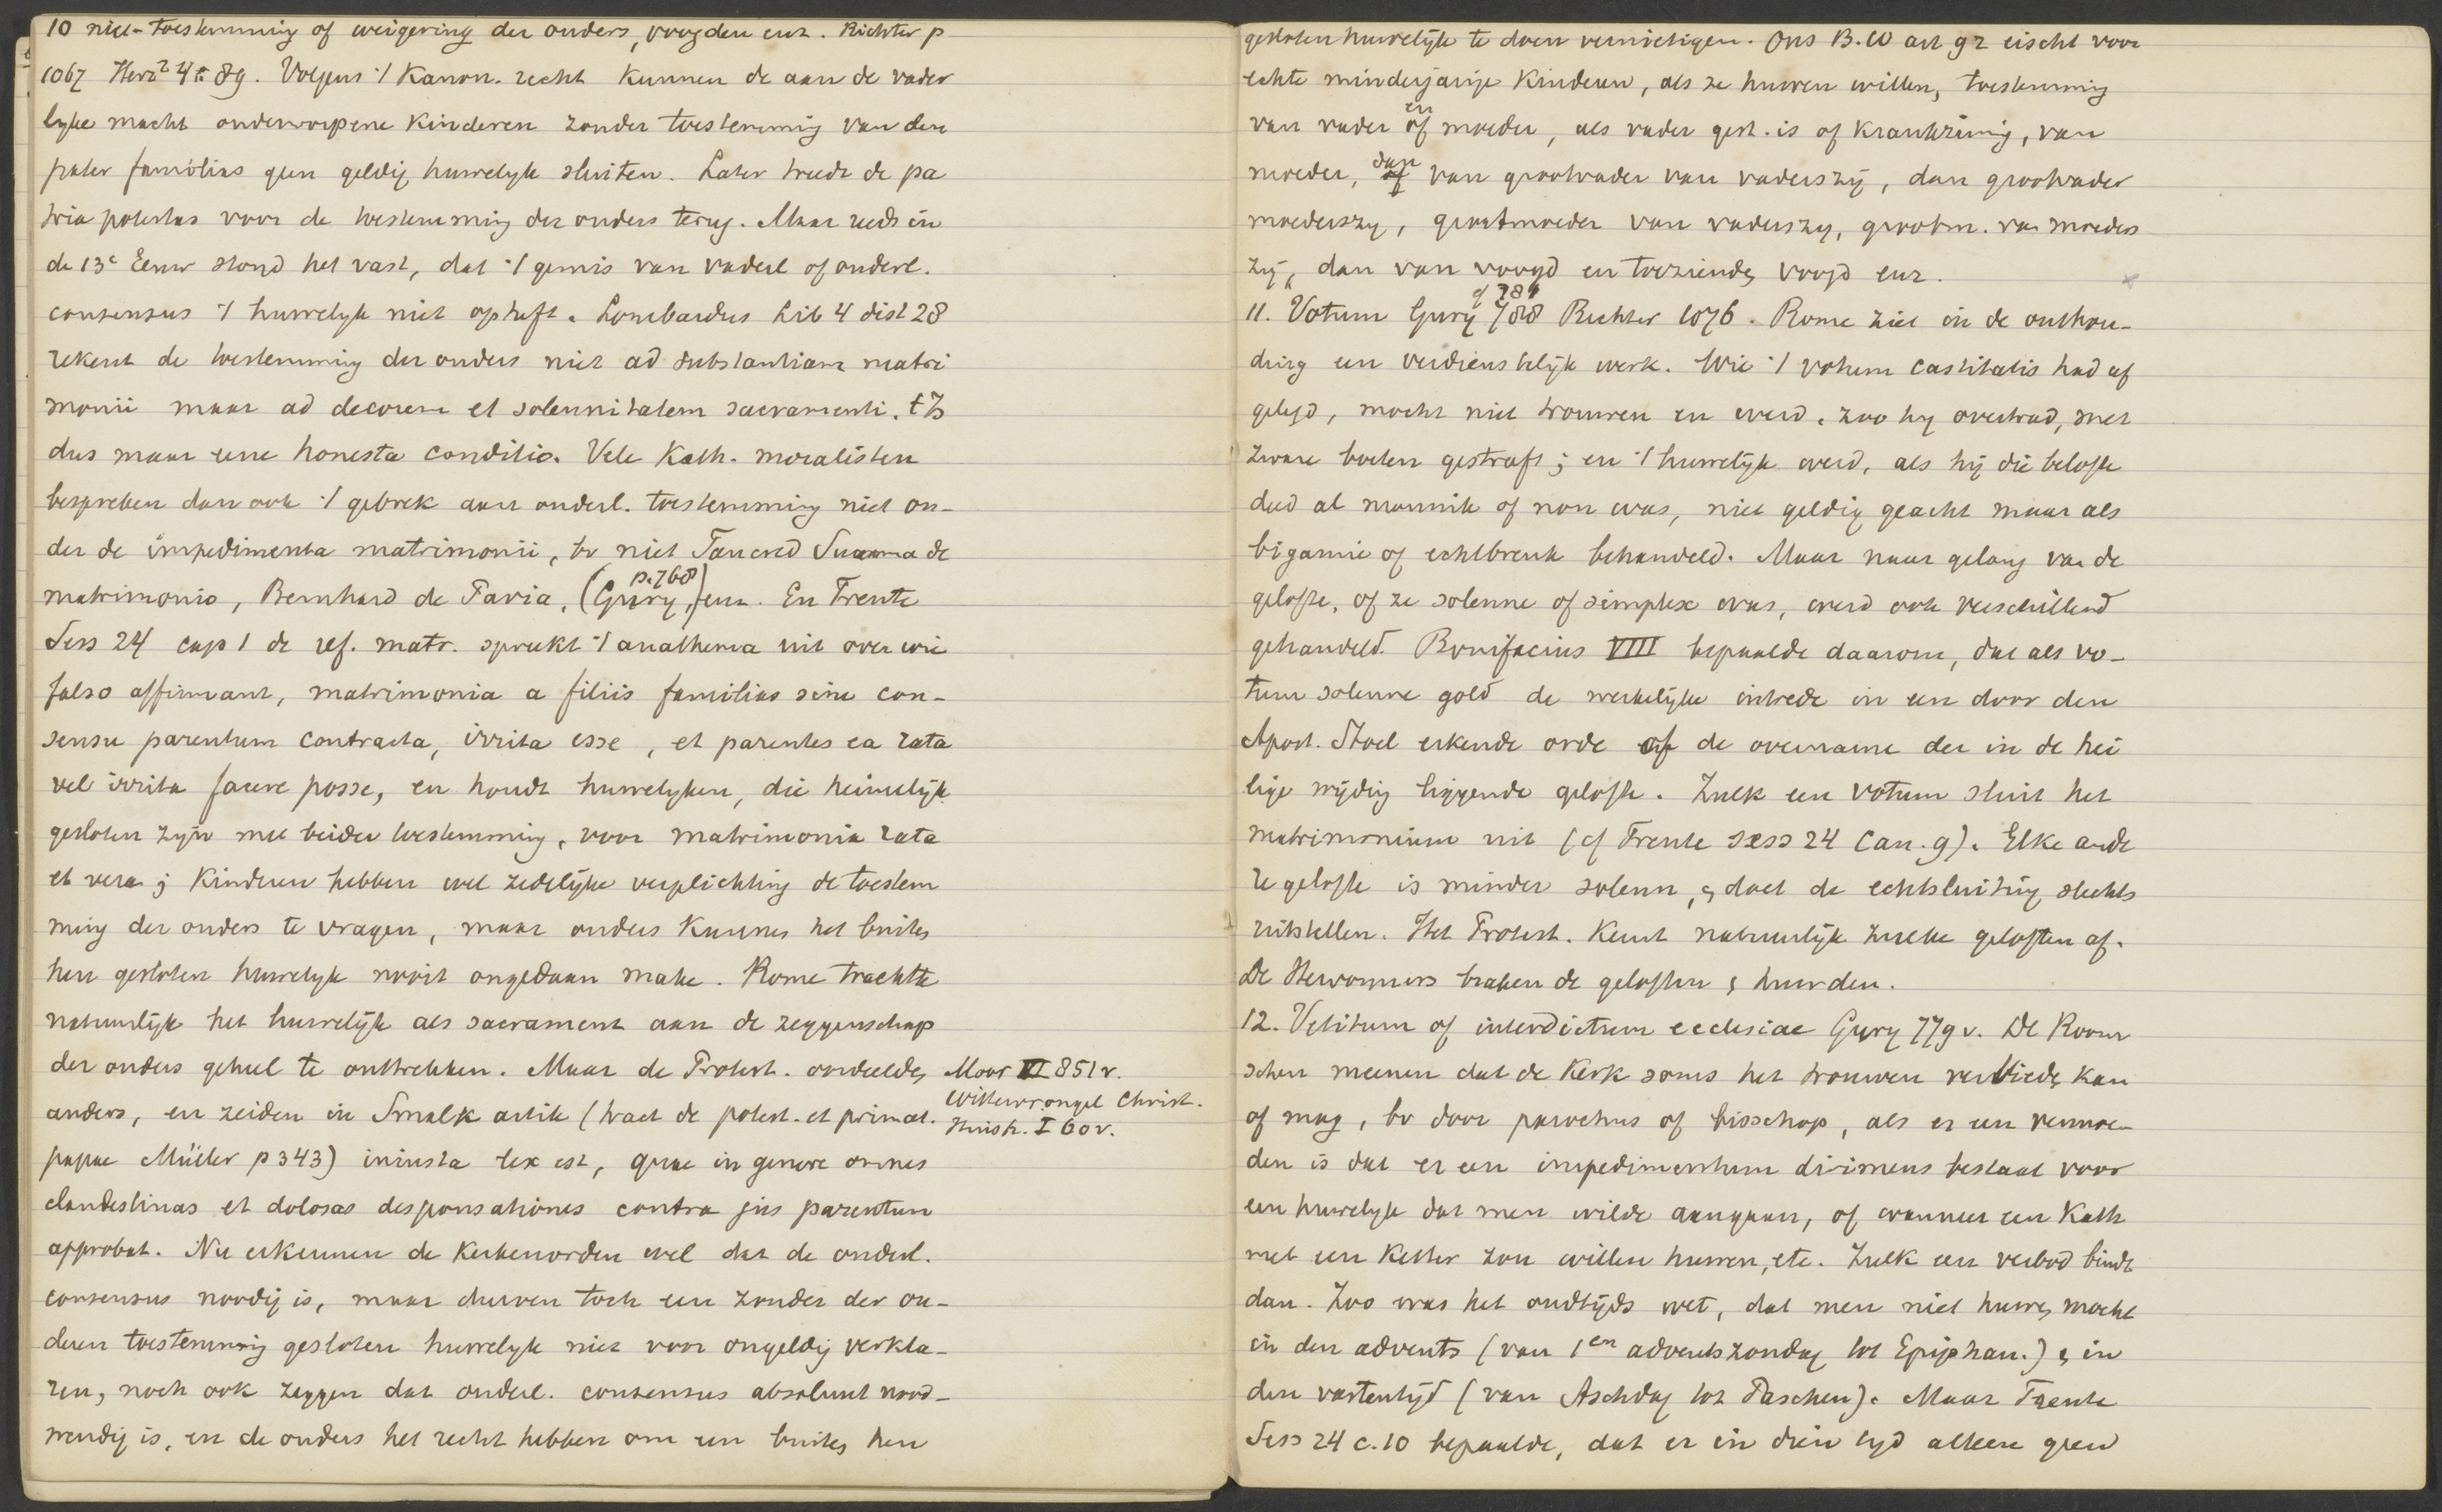 10 niet-toestemming of weigering der ouders, voogden enz. Richter p
1067 Herz² 4 89. Volgens 't Kanon. recht kunnen de aan de vader
lyke macht onderworpene kinderen zonder toestemming van den
pater familias geen geldig huwelyk sluiten. Later treedt de pa
tria potestas voor de toestemming der ouders terug. Maar reeds in
de 13e Eeuw stond het vast, dat 't gemis van vaderl of ouderl.
consensus 't huwelyk niet opheft. Lombardus Lib 4 dist 28
rekent de toestemming der ouders niet ad substantiam matri
monii maar ad decorem et solennitatem sacramenti. 't Is
dus maar eene honesta conditio. Vele Kath. moralisten
bespreken dan ook 't gebrek aan ouderl. toestemming niet on-
der de impedimenta matrimonii, bv niet Tancred Summa de
matrimonio, Bernhard de Pavia, (Gury, p. 768) enz. En Trente
Sess 24 cap 1 de ref. matr. spreekt 't anathema uit over wie
falso affirmant, matrimonia a filiis familias sine con-
sensu parentum contracta, irrita esse, et parentes ea rata
vel irrita facere posse, en houdt huwelyken, die heimelijk
gesloten zijn met beider toestemming, voor matrimonia rata
et vera; Kinderen hebben wel zedelijke verplichting de toestem
ming der ouders te vragen, maar ouders kunnen het buiten
hen gesloten huwelyk nooit ongedaan maken. Rome trachtte
natuurlijk het huwelijk als sacrament aan de zeggenschap
der ouders geheel te onttrekken. Maar de Protest. oordeelden
anders, en zeiden in Smalk artik (tract de potest. et primat.
papae Müller p 343) iniusta lex est, quae in genere omnes
clandestinas et dolosas desponsationes contra jus parentum
approbat. Nu erkennen de Kerkenorden wel dat de ouderl.
consensus noodig is, maar durven toch een zonder der ou-
deren toestemming gesloten huwelyk niet voor ongeldig verkla-
ren, noch ook zeggen dat ouderl. consensus absoluut nood-
wendig is, en de ouders het recht hebben om een buiten hen
Moor VI 851 v.
Wittewrongel Christ.
Huish. I 60 v.
gesloten huwelijk te doen vernietigen. Ons B.W art 92 eischt voor
echte minderjarige Kinderen, als ze huwen willen, toestemming
van vader en of moeder, als vader gest. is of krankzinnig, van
moeder, dan of van grootvader van vaderszij, dan grootvader
moederszy, grootmoeder van vaderszy, grootm. van moeders
zij, dan van voogd en toeziende voogd enz.
11. Votum Gury 788 of 784 Richter 1076. Rome ziet in de onthou-
ding een verdienstelijk werk. Wie 't votum castitatis had af
gelegd, mocht niet trouwen en werd, zoo hy overtrad, met
zware boeten gestraft; en 't huwelijk werd, als hij die belofte
deed al monnik of non was, niet geldig geacht maar als
bigamie of echtbreuk behandeld. Maar naar gelang van de
gelofte, of ze solenne of simplex was, werd ook verschillend
gehandeld. Bonifacius VIII bepaalde daarom, dat als vo-
tum solenne gold de werkelijke intrede in een door den
Apost. Stoel erkende orde of de overname der in de hei
lige wijding liggende gelofte. Zulk een votum sluit het
matrimonium uit (cf Trente sess 24 can. 9). Elke ande
re gelofte is minder solenn, & doet de echtsluiting slechts
uitstellen. Het Protest. keurt natuurlijk zulke geloften af.
De Hervormers braken de geloften & huwden.
12. Vetitum of interdictum ecclesiae Gury 779 v. De Room
schen meenen dat de Kerk soms het trouwen verbieden kan
of mag, bv door parochus of bisschop, als er een vermoe-
den is dat er een impedimentum dirimens bestaat voor
een huwelyk dat men wilde aangaan, of wanneer een Kath
met een Ketter zou willen huwen, etc. Zulk een verbod bindt
dan. Zoo was het oudtijds wet, dat men niet huwen mocht
in den advents (van 1en adventszondag tot Epiphan.) & in
den vastentijd (van Aschdag tot Paschen). Maar Trente
Sess 24 c. 10 bepaalde, dat er in dien tyd alleen geen